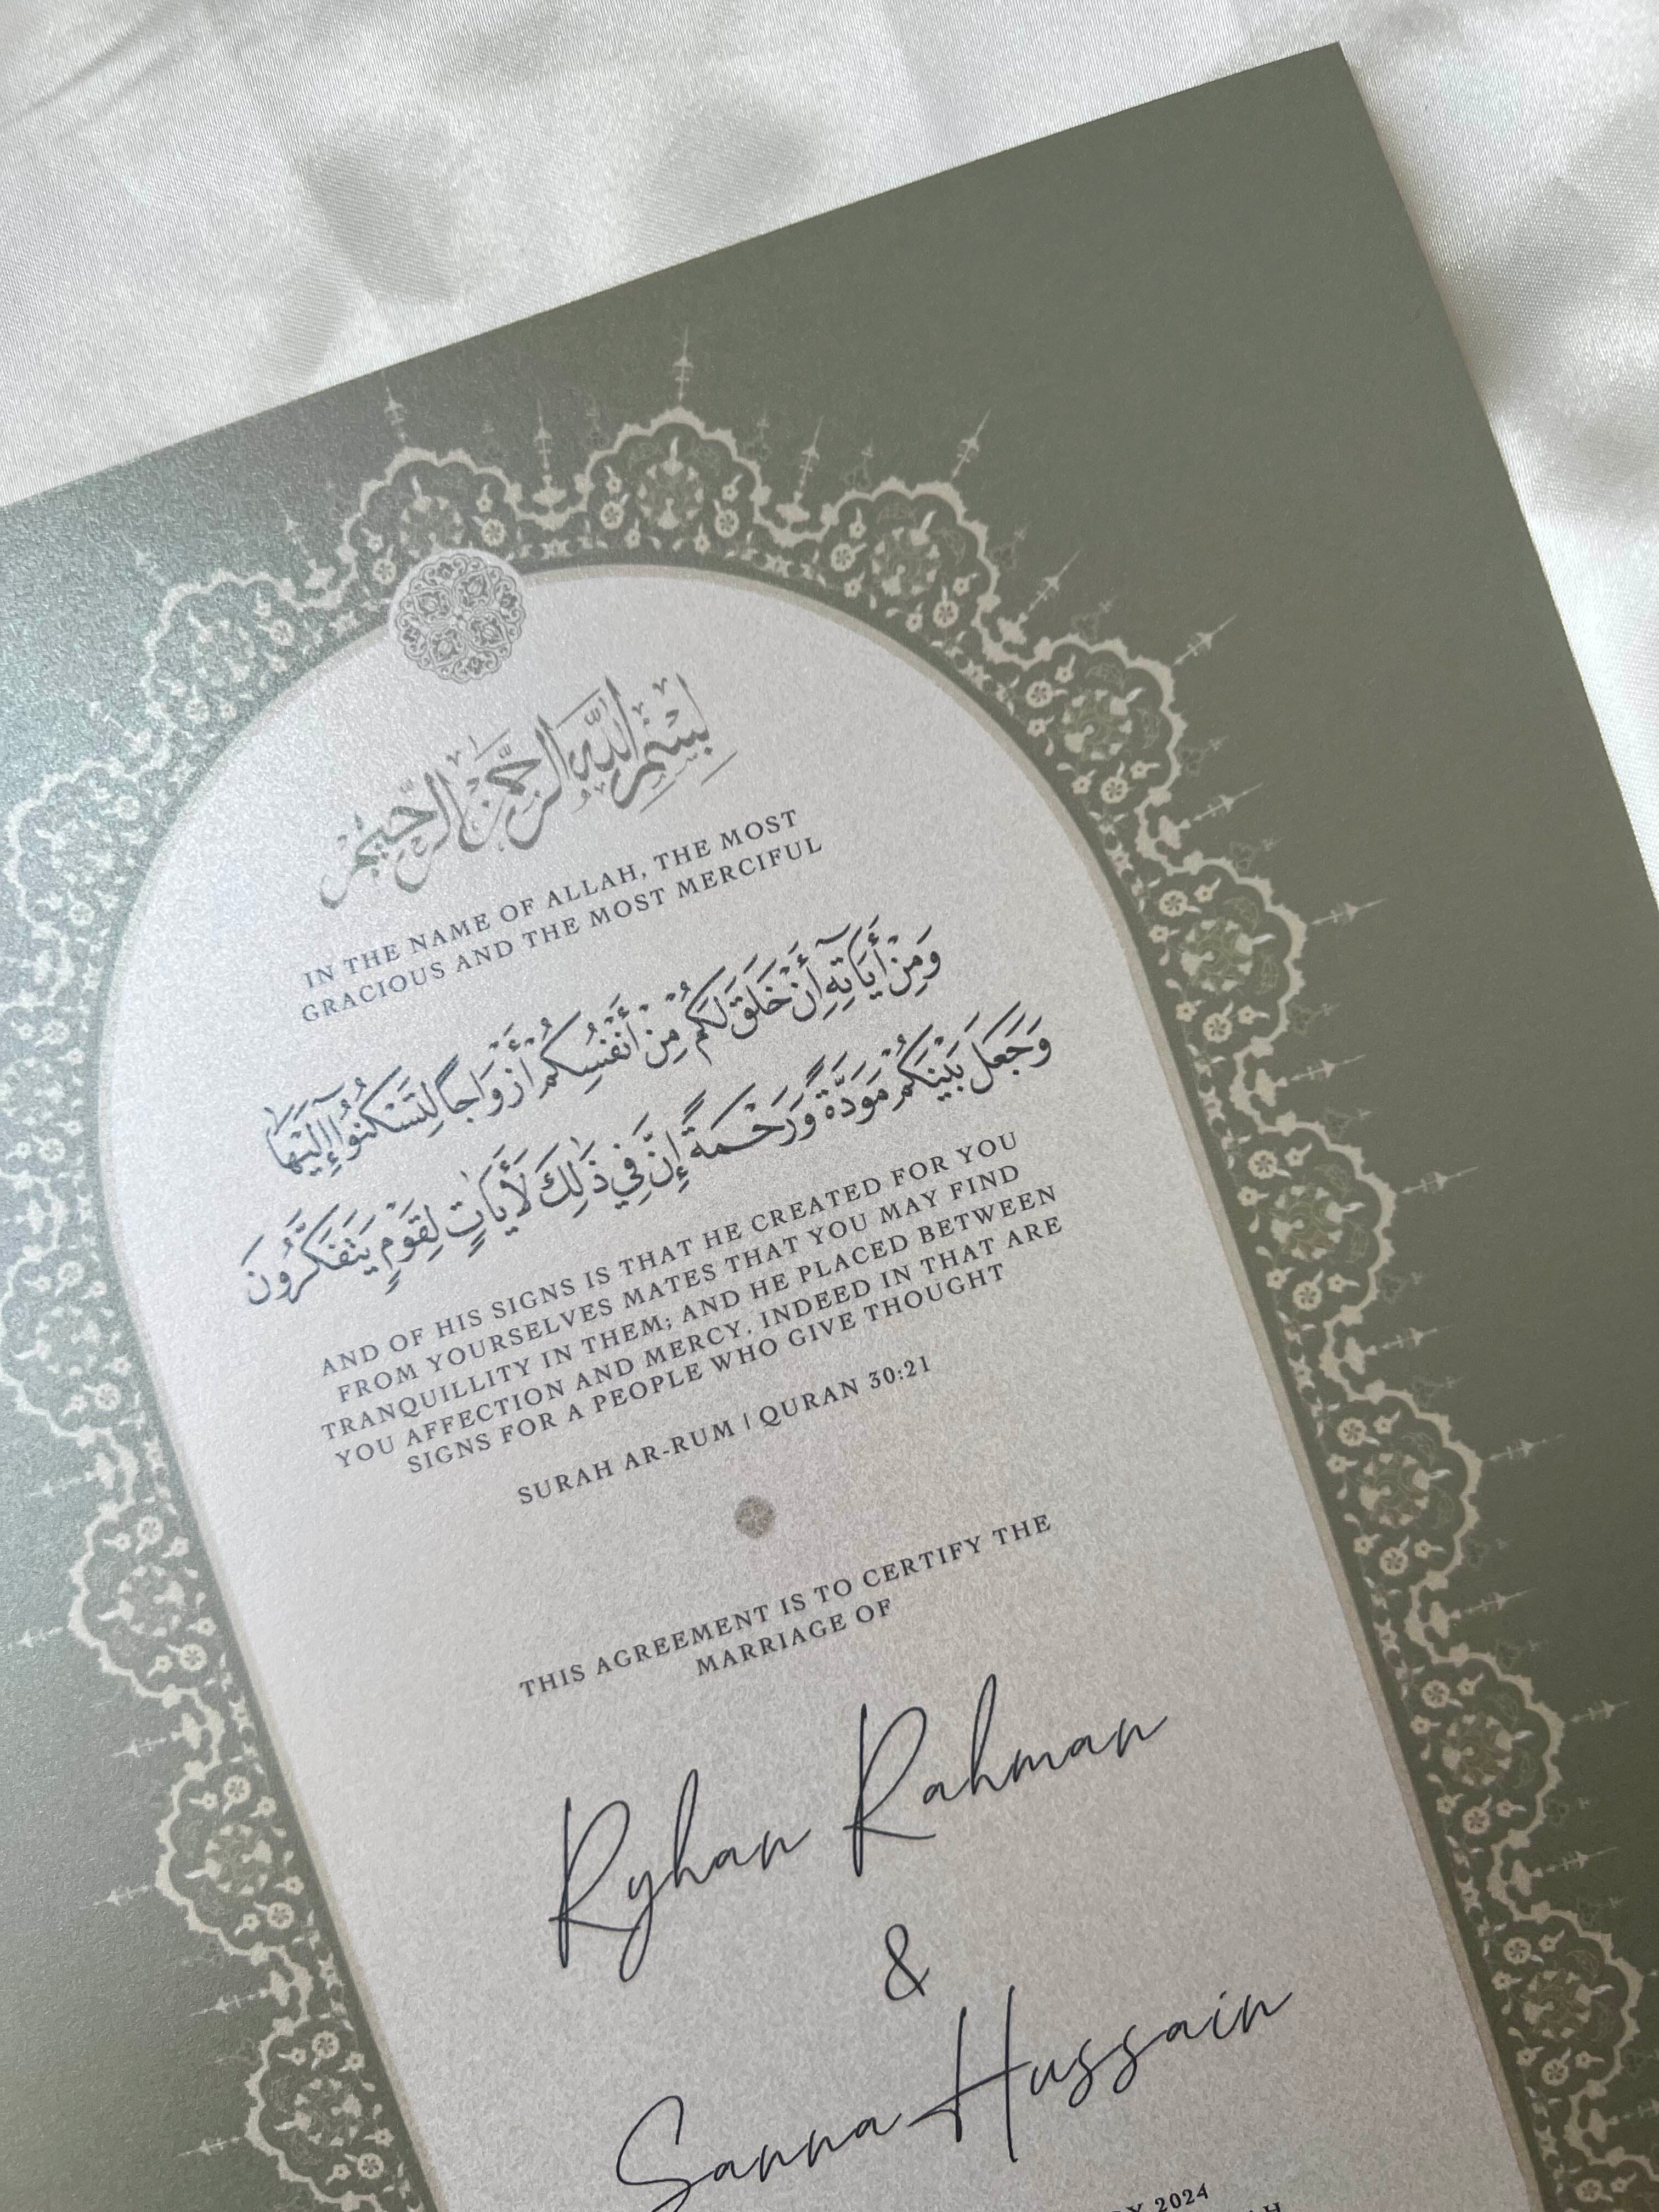 بِسْمِ اللَّهِ الرَّحْمَٰنِ الرَّحِيمِ
IN THE NAME OF ALLAH, THE MOST
GRACIOUS AND THE MOST MERCIFUL
وَمِنْ أَيَاتِهِ أَنْ خَلَقَ لَكُمْ مِنْ أَنْفُسِكُمْ أَزْوَاجًا لِتَسْكُنُوا إِلَيْهَا
وَجَعَلَ بَيْنَكُمْ مَوَدَّةً وَرَحْمَةً إِنَّ فِي ذَٰلِكَ لَأَيَاتٍ لِقَوْمٍ يَتَفَكَّرُونَ
AND OF HIS SIGNS IS THAT HE CREATED FOR YOU
FROM YOURSELVES MATES THAT YOU MAY FIND
TRANQUILLITY IN THEM; AND HE PLACED BETWEEN
YOU AFFECTION AND MERCY. INDEED IN THAT ARE
SIGNS FOR A PEOPLE WHO GIVE THOUGHT
SURAH AR-RUM | QURAN 30:21
THIS AGREEMENT IS TO CERTIFY THE
MARRIAGE OF
Ryhan Rahman
&
Sanna Hussain
2024